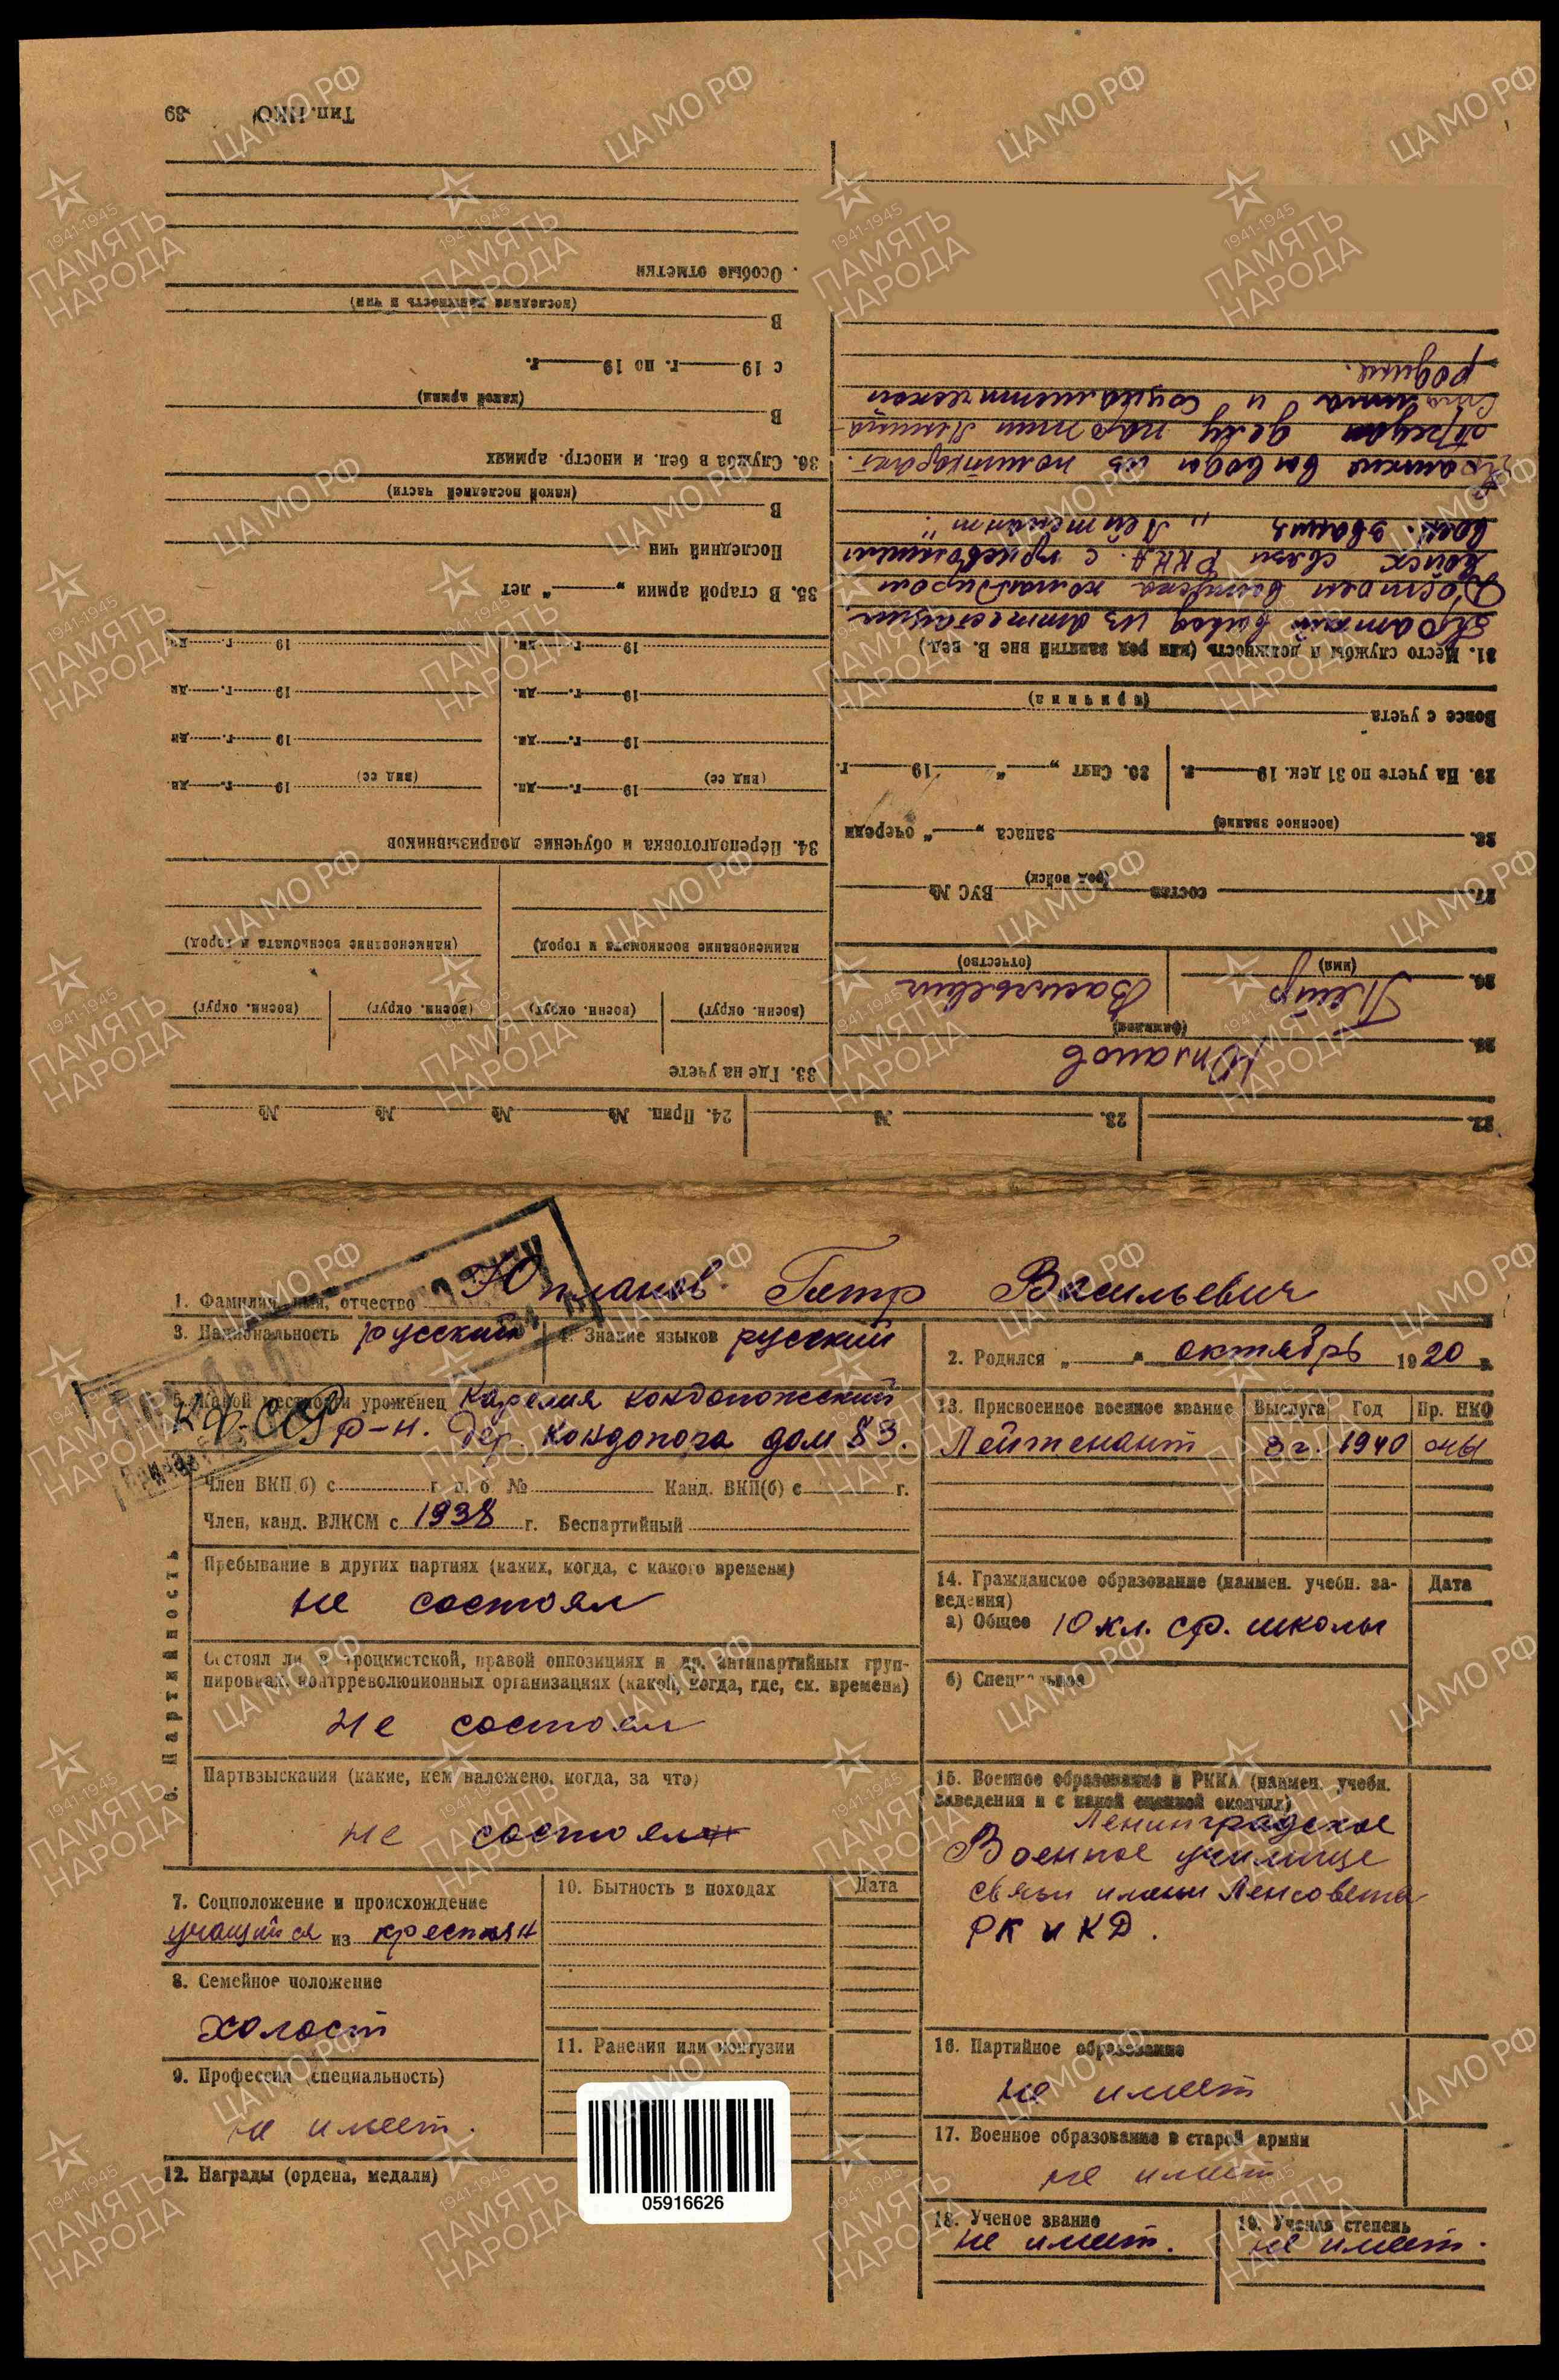 1. Фамилия, имя, отчество Юпланов Петр Васильевич
3. Национальность русский 4. Знание языков русский
2. Родился „ " октябрь 1920 г.
5. Какой местности уроженец Карелия кондопожский
К.Ф.ССР р-н. дер. Кондопога дом 83.
13. Присвоенное военное звание Выслуга Год Пр. НКО
Лейтенант 3 г. 1940
6. Партийность
Член ВКП(б) с г. п. б. № Канд. ВКП(б) с г.
Член, канд. ВЛКСМ с 1938 г. Беспартийный
Пребывание в других партиях (каких, когда, с какого времени)
не состоял
Состоял ли в троцкистской, правой оппозициях и др. антипартийных груп-
пировках, контрреволюционных организациях (какой, когда, где, ск. времени)
не состоял
Партвзыскания (какие, кем наложено, когда, за что)
не состоял
14. Гражданское образование (наимен. учебн. за-
ведения) Дата
а) Общее 10 кл. ср. школы
б) Специальное
15. Военное образование в РККА (наимен. учебн.
заведения и с какой оценкой окончил)
Ленинградское
Военное училище
связи имени Ленсовета
РК и КД.
7. Соцположение и происхождение
учащийся из крестьян
8. Семейное положение
холост
9. Профессия (специальность)
не имеет.
10. Бытность в походах Дата
11. Ранения или контузии
12. Награды (ордена, медали)
16. Партийное образование
не имеет
17. Военное образование в старой армии
не имеет
18. Ученое звание
не имеет.
19. Ученая степень
не имеет.
05916626
22. 23. № 24. Прип. № № № №
25. Юпланов
(фамилия)
26. Петр Васильевич
(имя) (отчество)
27. состав (род войск) ВУС №
28. (военное звание) запаса „ " очереди
29. На учете по 31 дек. 19 г. 30. Снят „ " 19 г.
Вовсе с учета
(причина)
31. Место службы и должность (или род занятий вне В. вед.)
Краткий вывод из аттестации
Достоен выпуска командиром
войск связи РККА с присвоением
воен. звания „Лейтенант".
Краткие выводы из политхаракт.
Предан делу партии Ленина-
Сталина и социалистической
родине.
33. Где на учете
(воен. округ) (воен. округ) (воен. округ) (воен. округ)
наименование военкомата и город) (наименование военкомата и город)
34. Переподготовка и обучение допризывников
(вид сс) 19 г. дн. (вид сс) 19 г. дн.
19 г. дн. 19 г. дн
19 г. дн. 19 г. дн
19 г. дн. 19 г. дн
35. В старой армии „ " лет
Последний чин
В
(какой последней части)
36. Служба в бел. и иностр. армиях
В
(какой армии)
с 19 г. по 19 г.
В
(последние должность и чин)
. Особые отметки
Тип. НКО 39
ЦАМО РФ
1941-1945
ПАМЯТЬ
НАРОДА